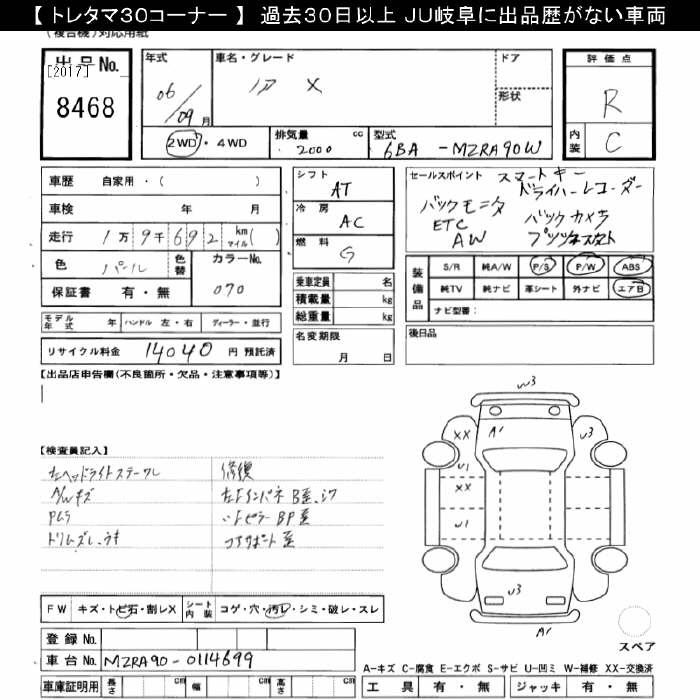 【 トレタマ30コーナー 】 過去30日以上 JU岐阜に出品歴がない車両
(複合機) 対応用紙
出品No.
[2017]
8468
年式
06/09月
車名・グレード
X
ドア
形状
2WD・4WD
排気量 cc
2000
型式
6BA - MZRA90W
評価点
R
内装
C
車歴 自家用・( )
車検 年 月
走行 1万9千692 km マイル( )
色 パール
色替
カラーNo.
070
保証書 有・無
シフト
AT
冷房
AC
燃料
G
セールスポイント スマートキー
ドライバーレコーダー
バックモニタ バックカメラ
ETC プッシュスタート
AW
乗車定員 名
積載量 kg
総重量 kg
装備品
S/R 純A/W P/S P/W ABS
純TV 純ナビ 革シート 外ナビ エアB
ナビ型番:
モデル年式 年 ハンドル 左・右 ディーラー・並行
リサイクル料金 14040 円 預託済
名変期限
月 日
後日品
【出品店申告欄(不良箇所・欠品・注意事項等)】
【検査員記入】
左ヘッドライトステーワレ
A/Wキズ
トリムズレ、ウキ
修復
コアサポート歪
W3
A1
XX
U3
U1
XX
U1
U3
A1
FW キズ・トビ石・割レX
シート内装 コゲ・穴・汚レ・シミ・破レ・スレ
登録No.
車台No. MZRA90-0114699
車庫証明用 長さ cm 幅 cm 高さ cm
スペア
A-キズ C-腐食 E-エクボ S-サビ U-凹ミ W-補修 XX-交換済
工具 有・無 ジャッキ 有・無